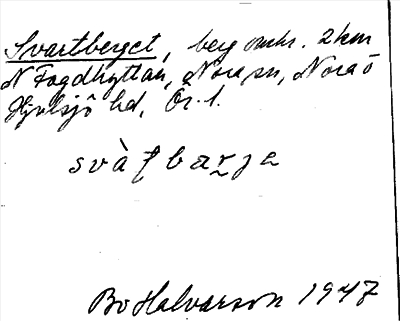 Svartberget, berg omkr. 2 km
N Fogdhyttan, Nora sn, Nora o
Hjulsjö hd, Ör. l.
svàʈbarjə
Bo Halvarson 1947